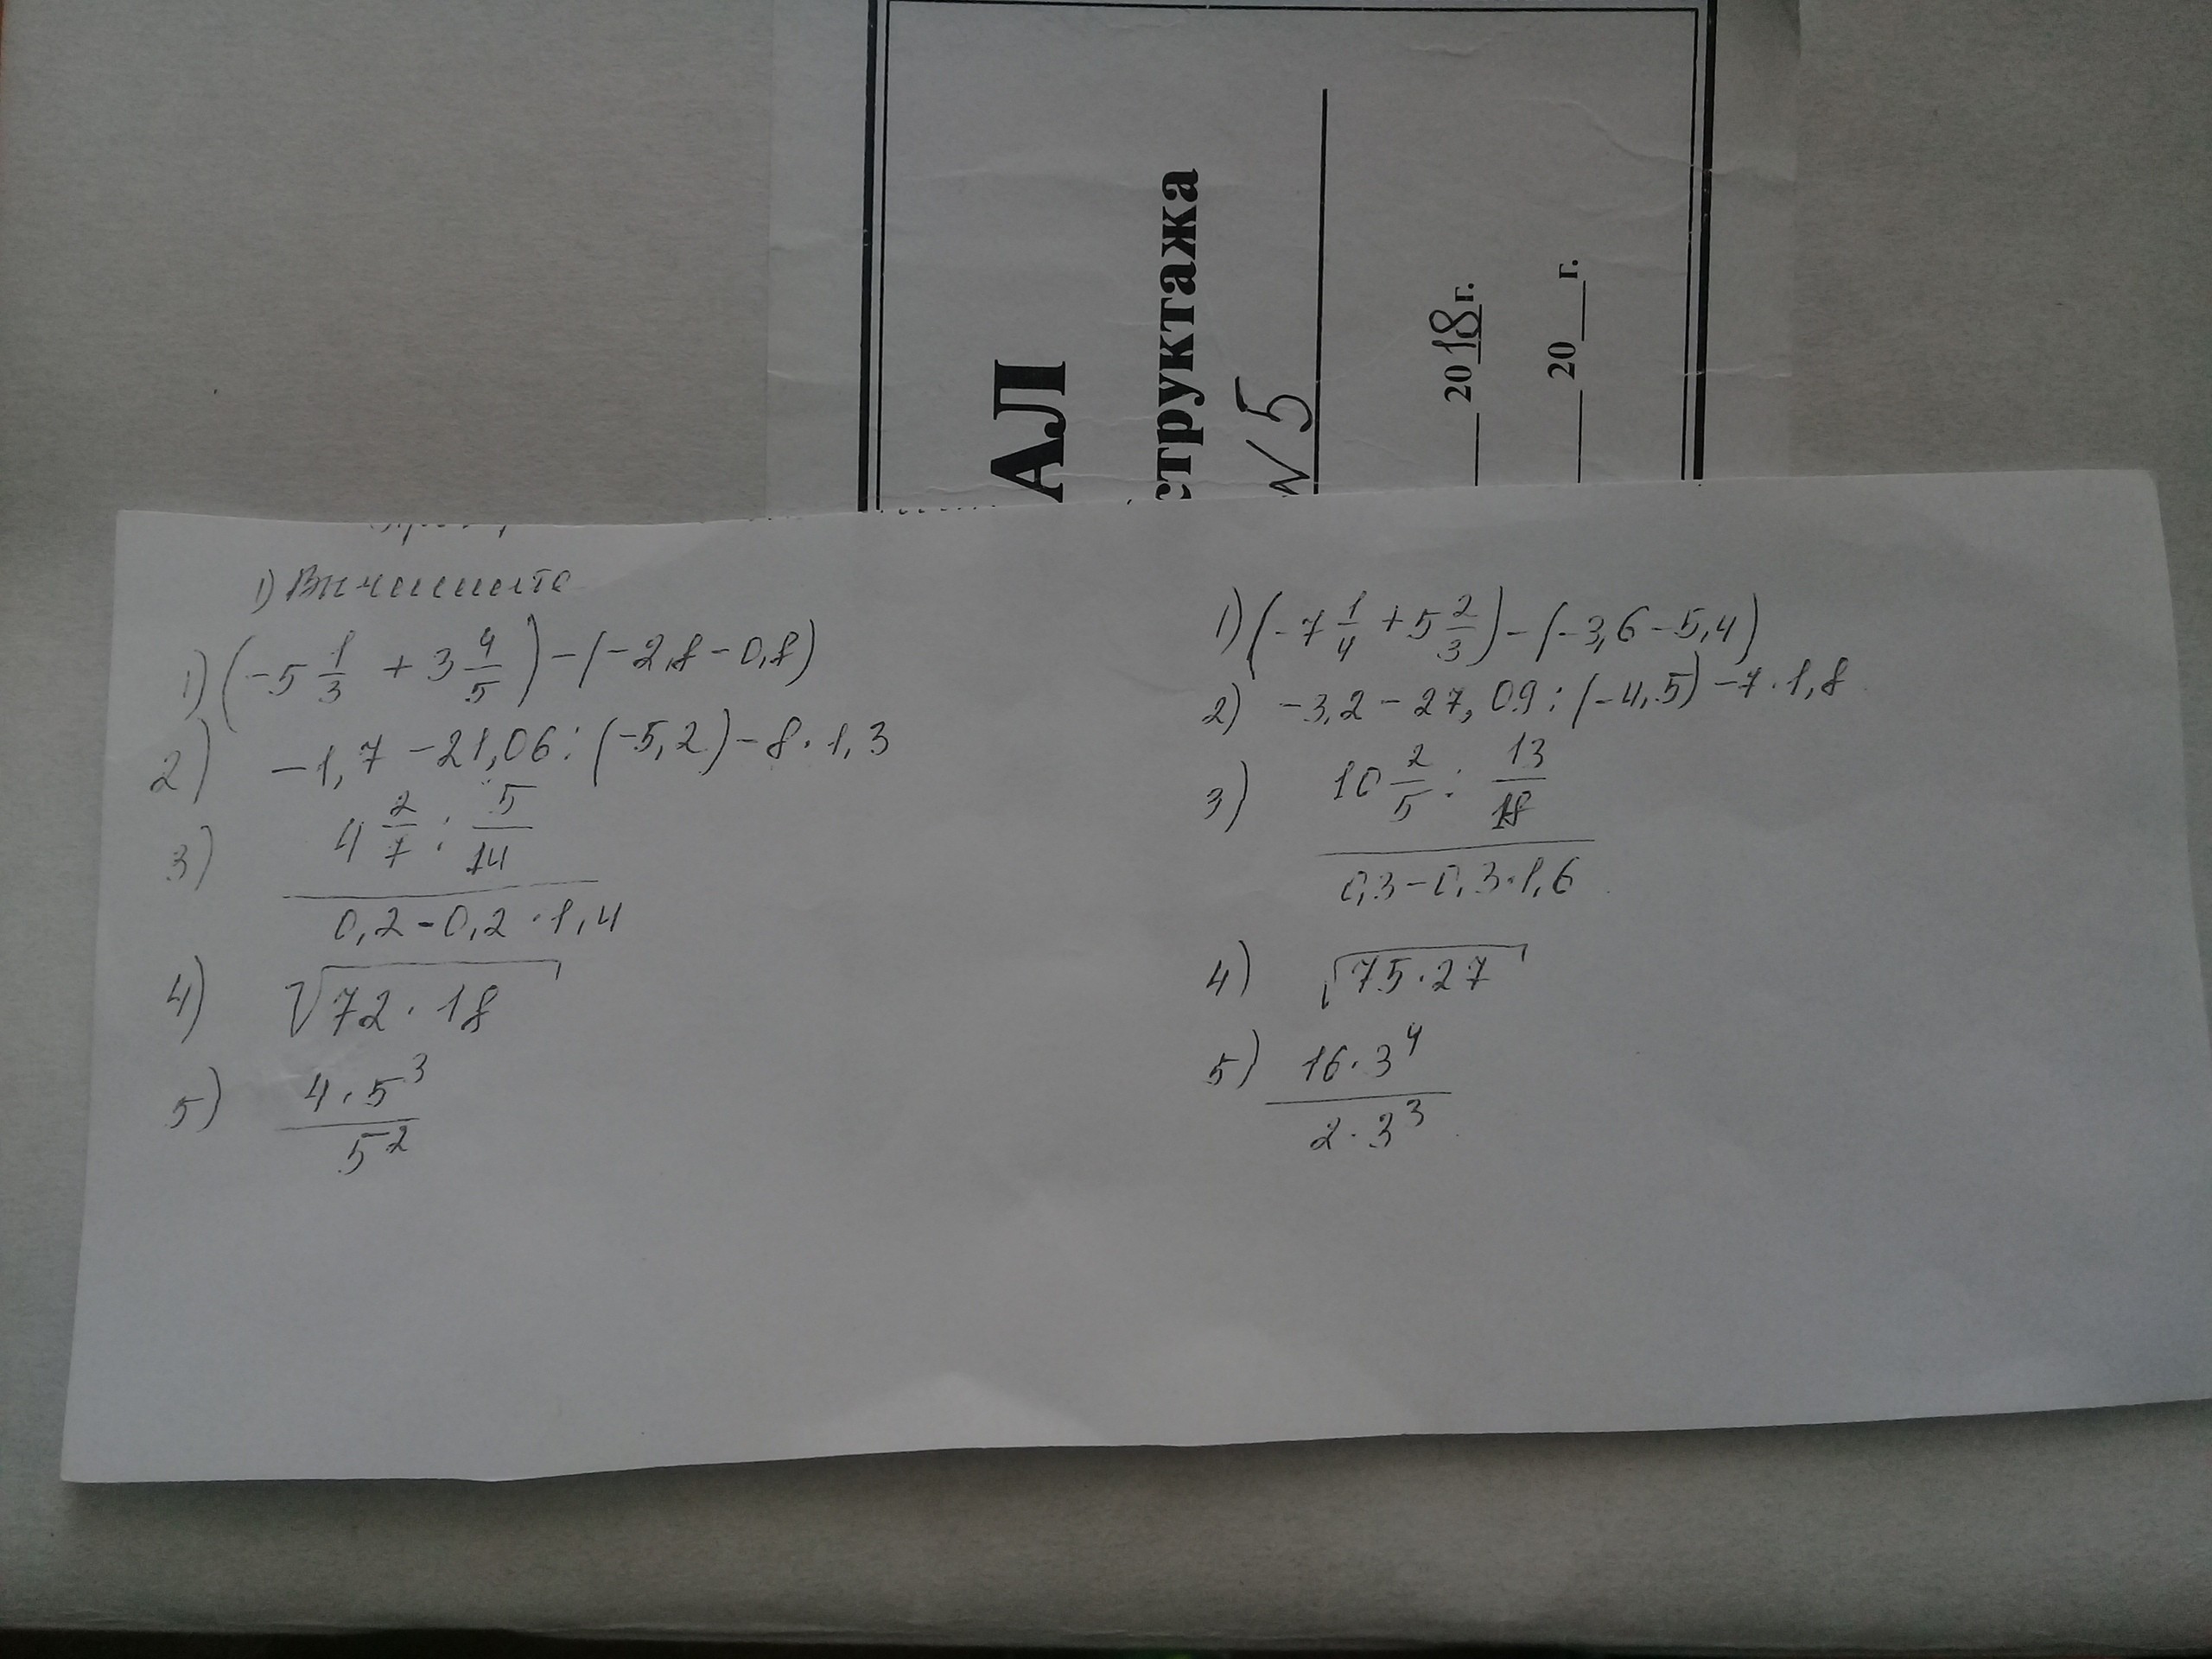 АЛ
структажа
N 5
2018 г.
20 г.
1) Вычислите
1) (-5 1/3 + 3 4/5) - (-2,8 - 0,8)
2) -1,7 - 21,06 : (-5,2) - 8 · 1,3
3) 4 2/7 : 5/14
0,2 - 0,2 · 1,4
4) √72 · 18
5) 4 · 5³
5²
1) (-7 1/4 + 5 2/3) - (-3,6 - 5,4)
2) -3,2 - 27,09 : (-4,5) - 7 · 1,8
3) 10 2/5 : 13/18
0,3 - 0,3 · 1,6
4) √75 · 27
5) 16 · 3⁴
2 · 3³